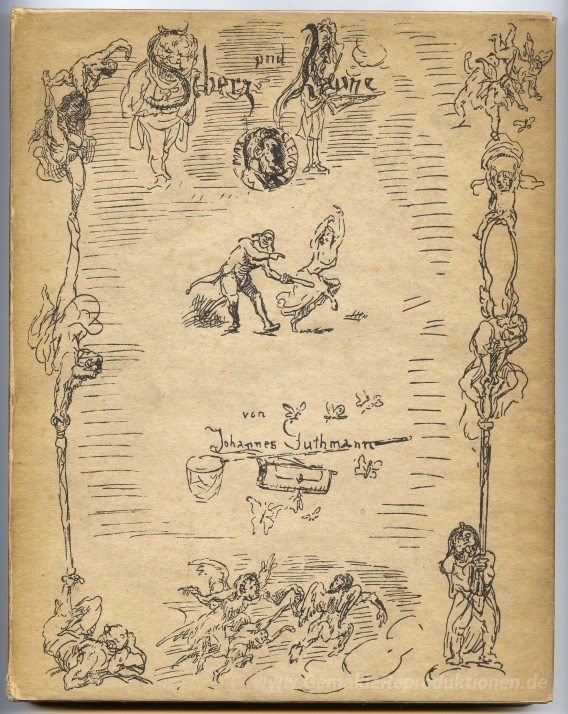 Scherz und Laune
von
Johannes Guthmann
www.Gemaelde-Reproduktionen.de